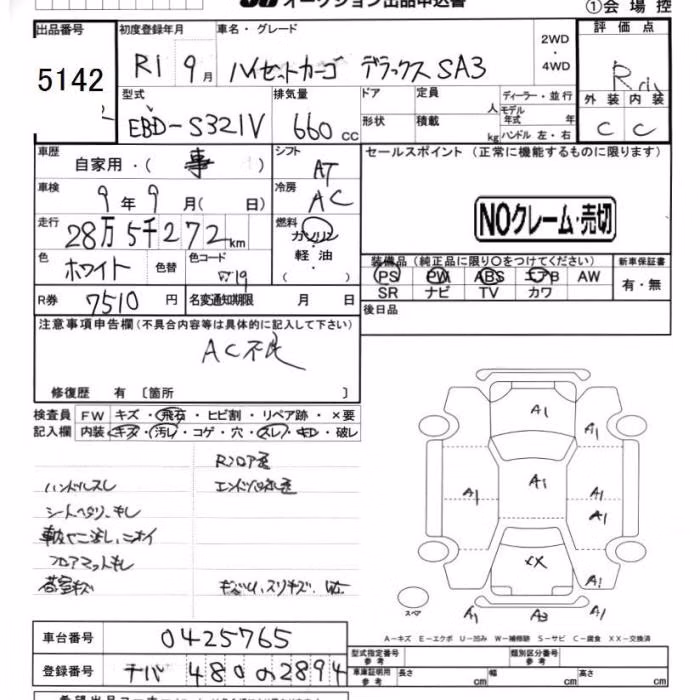 オークション出品申込書
①会場控
出品番号 初度登録年月 車名・グレード 2WD・4WD 評価点
5142 R1 9月 ハイゼットカーゴ デラックス SA3
外装 内装
C C
型式 排気量 ドア 定員 人 ディーラー・並行
EBD-S321V 660cc 形状 積載 kg モデル年式 年 ハンドル 左・右
車歴 自家用・(事) シフト AT セールスポイント(正常に機能するものに限ります)
車検 9年9月(日) 冷房 AC
NOクレーム・売切
走行 28万5千272km 燃料 ガソリン・軽油・( )
色 ホワイト 色替 色コード W19
装備品(純正品に限り○をつけてください) 新車保証書
PS PW ABS エアB AW 有・無
SR ナビ TV カワ
R券 7510円 名変通知期限 月 日
後日品
注意事項申告欄(不具合内容等は具体的に記入して下さい)
AC不良
修復歴 有 〔箇所 〕
検査員 FW キズ・飛石・ヒビ割・リペア跡・×要
記入欄 内装 キズ・汚レ・コゲ・穴・スレ・キレ・破レ
ハンドルスレ
フロアマットモレ
荷室キズ
A1
A1
A1
A1
A1
A1
XX
A1
A1
A3
A1
スペア
A-キズ E-エクボ U-凹み W-補修跡 S-サビ C-腐食 XX-交換済
車台番号 0425765
登録番号 チバ 480 の 2894
型式指定番号 参考 類別区分番号 参考
車庫証明用 参考 長さ cm 幅 cm 高さ cm